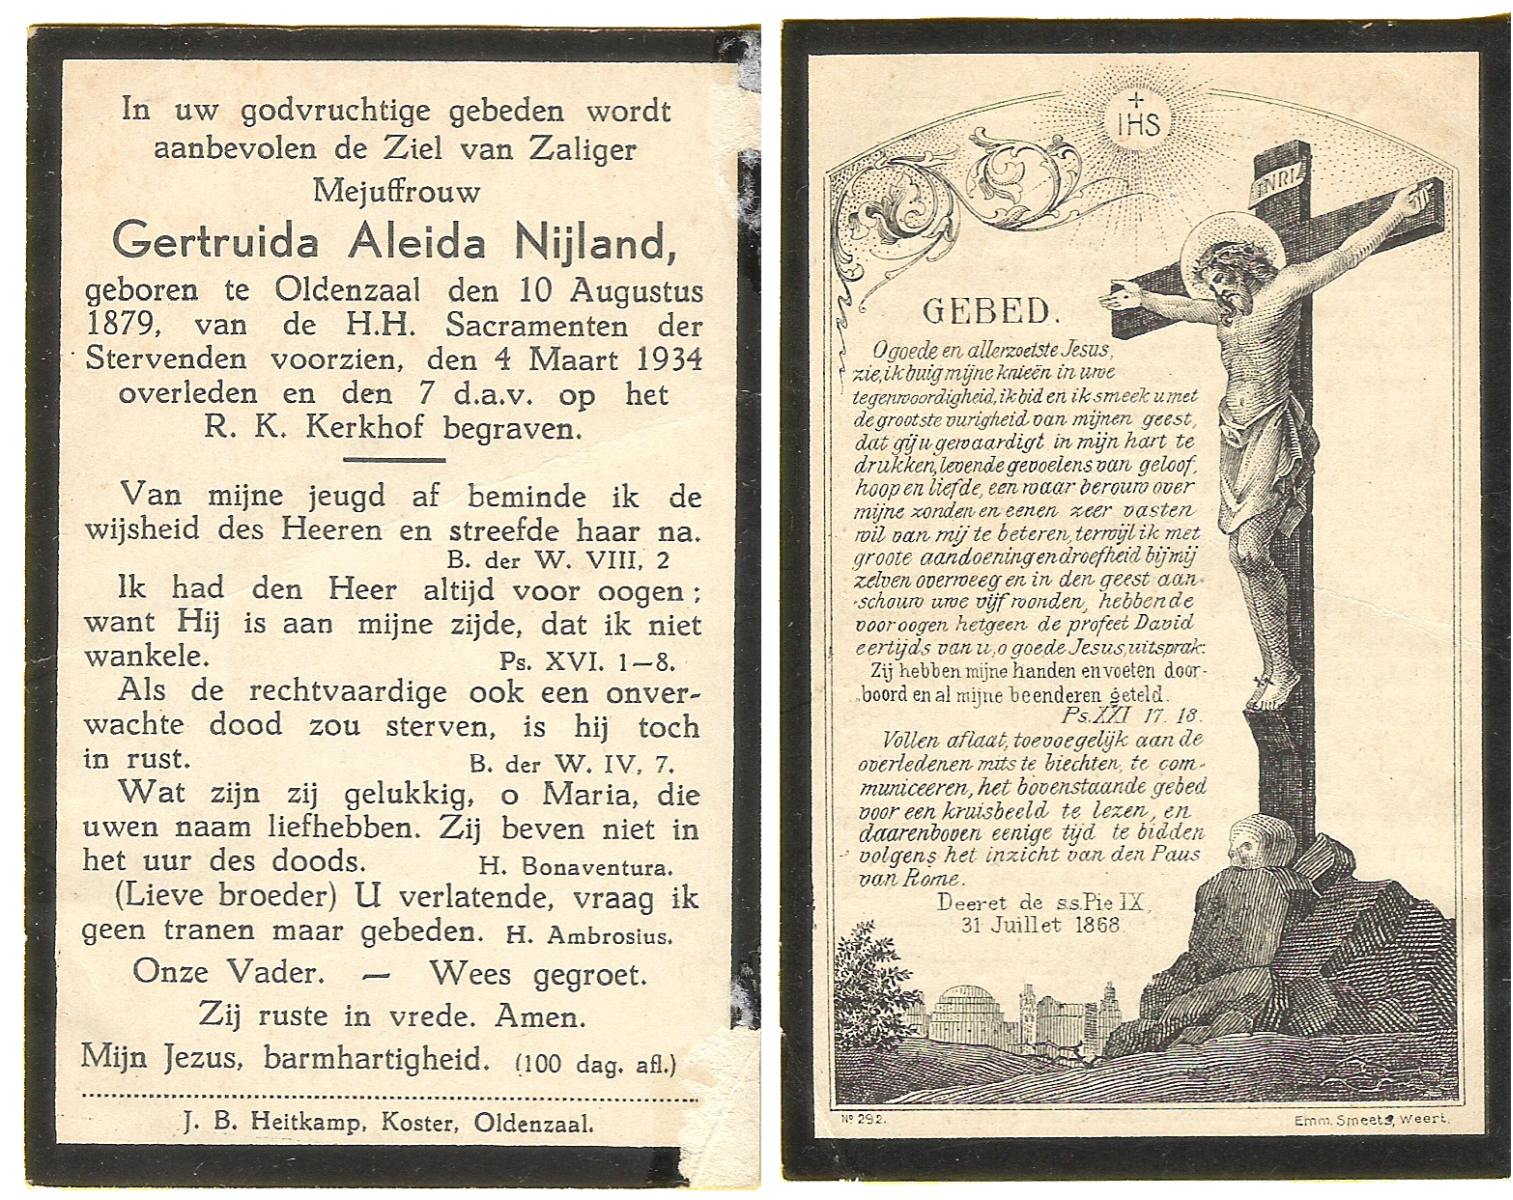 In uw godvruchtige gebeden wordt
aanbevolen de Ziel van Zaliger
Mejuffrouw
Gertruida Aleida Nijland,
geboren te Oldenzaal den 10 Augustus
1879, van de H.H. Sacramenten der
Stervenden voorzien, den 4 Maart 1934
overleden en den 7 d.a.v. op het
R. K. Kerkhof begraven.
Van mijne jeugd af beminde ik de
wijsheid des Heeren en streefde haar na.
B. der W. VIII, 2
Ik had den Heer altijd voor oogen;
want Hij is aan mijne zijde, dat ik niet
wankele. Ps. XVI. 1—8.
Als de rechtvaardige ook een onver-
wachte dood zou sterven, is hij toch
in rust. B. der W. IV, 7.
Wat zijn zij gelukkig, o Maria, die
uwen naam liefhebben. Zij beven niet in
het uur des doods. H. Bonaventura.
(Lieve broeder) U verlatende, vraag ik
geen tranen maar gebeden. H. Ambrosius.
Onze Vader. — Wees gegroet.
Zij ruste in vrede. Amen.
Mijn Jezus, barmhartigheid. (100 dag. afl.)
J. B. Heitkamp, Koster, Oldenzaal.
IHS
INRI
GEBED.
O goede en allerzoetste Jesus,
zie, ik buig mijne knieën in uwe
tegenwoordigheid, ik bid en ik smeek u met
de grootste vurigheid van mijnen geest,
dat gij u gewaardigt in mijn hart te
drukken, levende gevoelens van geloof,
hoop en liefde, een waar berouw over
mijne zonden en eenen zeer vasten
wil van mij te beteren, terwijl ik met
groote aandoening en droefheid bij mij
zelven overweeg en in den geest aan-
schouw uwe vijf wonden, hebbende
voor oogen hetgeen de profeet David
eertijds van u, o goede Jesus, uitsprak:
Zij hebben mijne handen en voeten door-
boord en al mijne beenderen geteld.
Ps. XXI 17. 18.
Vollen aflaat, toevoegelijk aan de
overledenen mits te biechten, te com-
municeeren, het bovenstaande gebed
voor een kruisbeeld te lezen, en
daarenboven eenige tijd te bidden
volgens het inzicht van den Paus
van Rome.
Decret de s.s. Pie IX,
31 Juillet 1868
No 292.
Emm. Smeets, Weert.